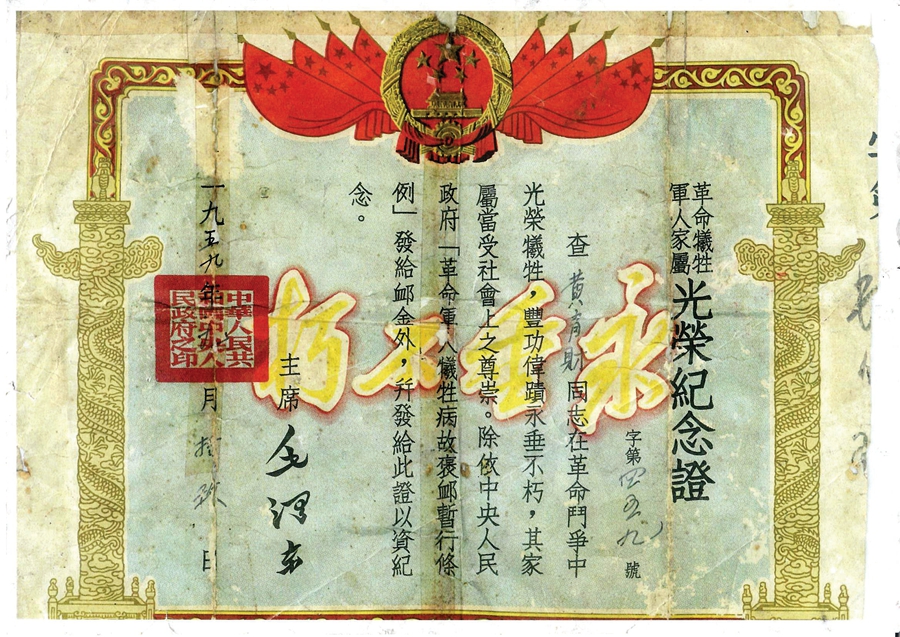 革命犧牲
軍人家屬
光榮紀念證
字第四五九八號
查黃有財同志在革命鬥爭中
光榮犧牲，豐功偉蹟永垂不朽，其家
屬當受社會上之尊崇。除依中央人民
政府「革命軍人犧牲病故褒卹暫行條
例」發給卹金外，幷發給此證以資紀
念。
主席 毛澤東
一九五九年 月 日
永垂不朽
中華人民共
民政府之印